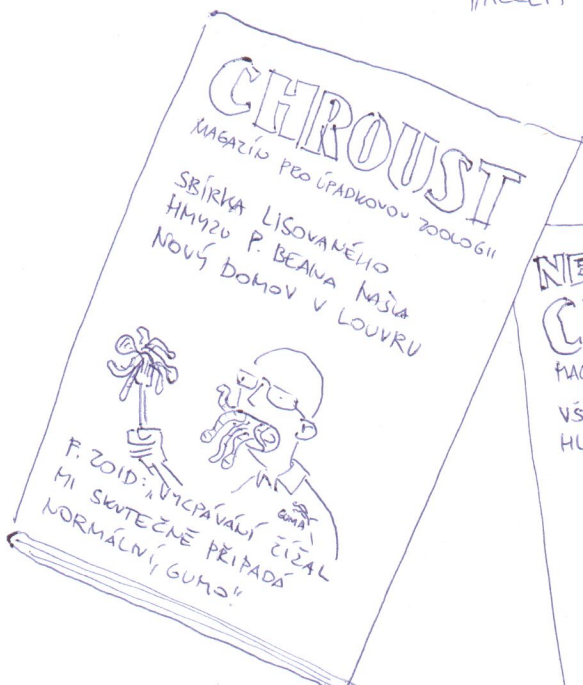 CHROUST
MAGAZÍN PRO ÚPADKOVOU ZOOLOGII
SBÍRKA LISOVANÉHO
HMYZU P. BEANA NAŠLA
NOVÝ DOMOV V LOUVRU
GUMA
F. ZOID: „VYCPÁVÁNÍ ŽÍŽAL
MI SKUTEČNĚ PŘIPADÁ
NORMÁLNÍ, GUMO“
NE
C
MAG
VŠ
HL